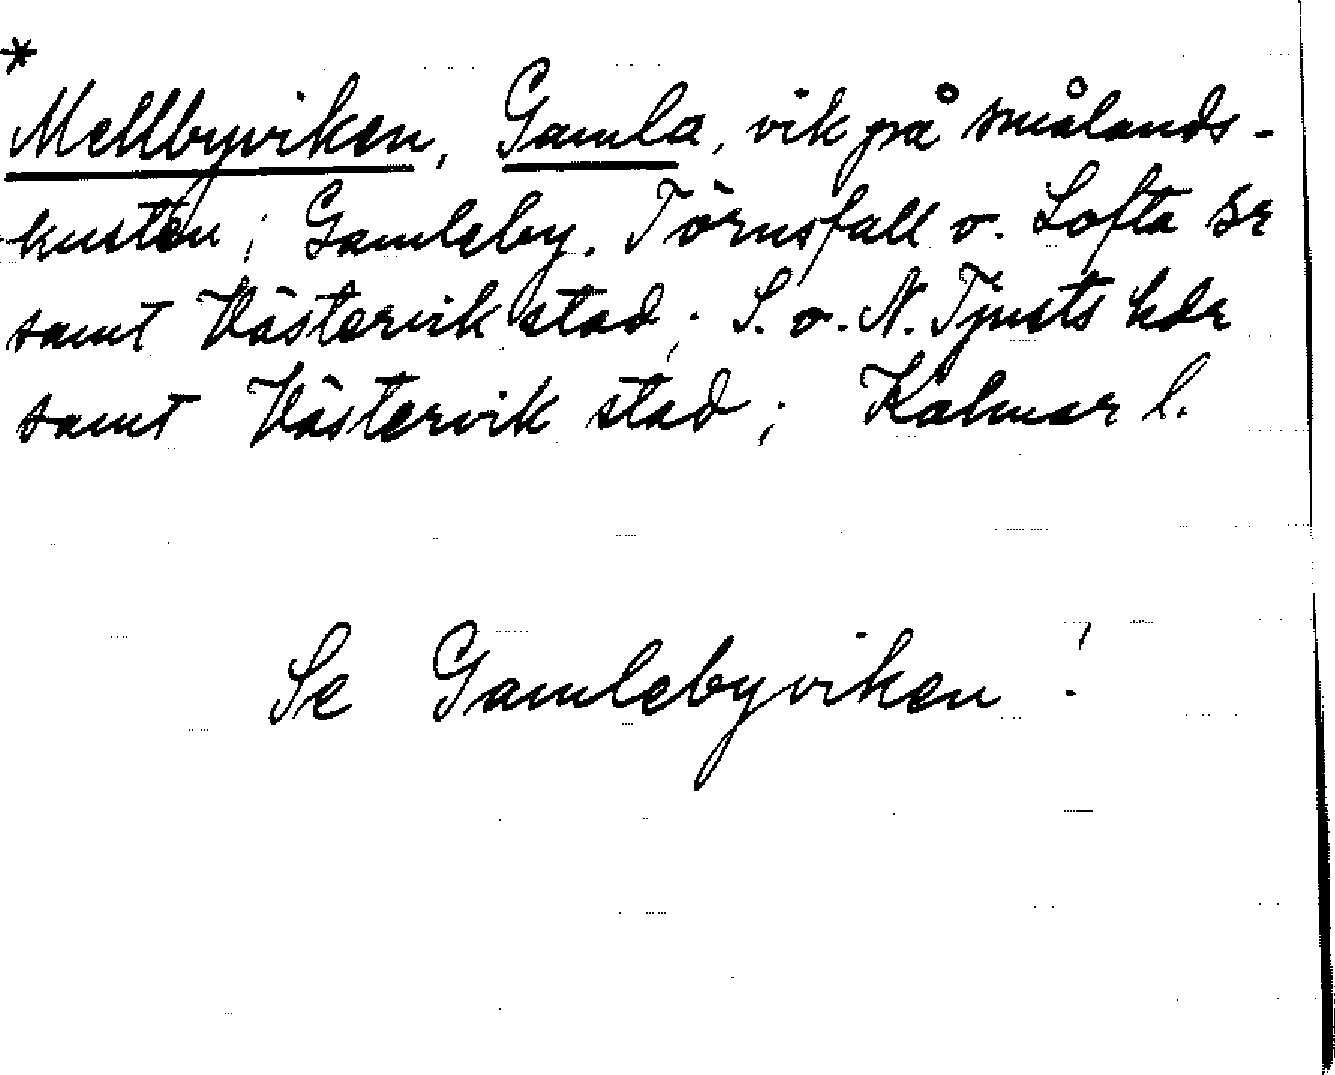 *
Mellbyviken, Gamla, vik på smålands-
kusten; Gamleby, Törnsfall o. Lofta sr
samt Västervik stad; S. o. N. Tjusts hdr
samt Västervik stad; Kalmar l.
Se Gamlebyviken!